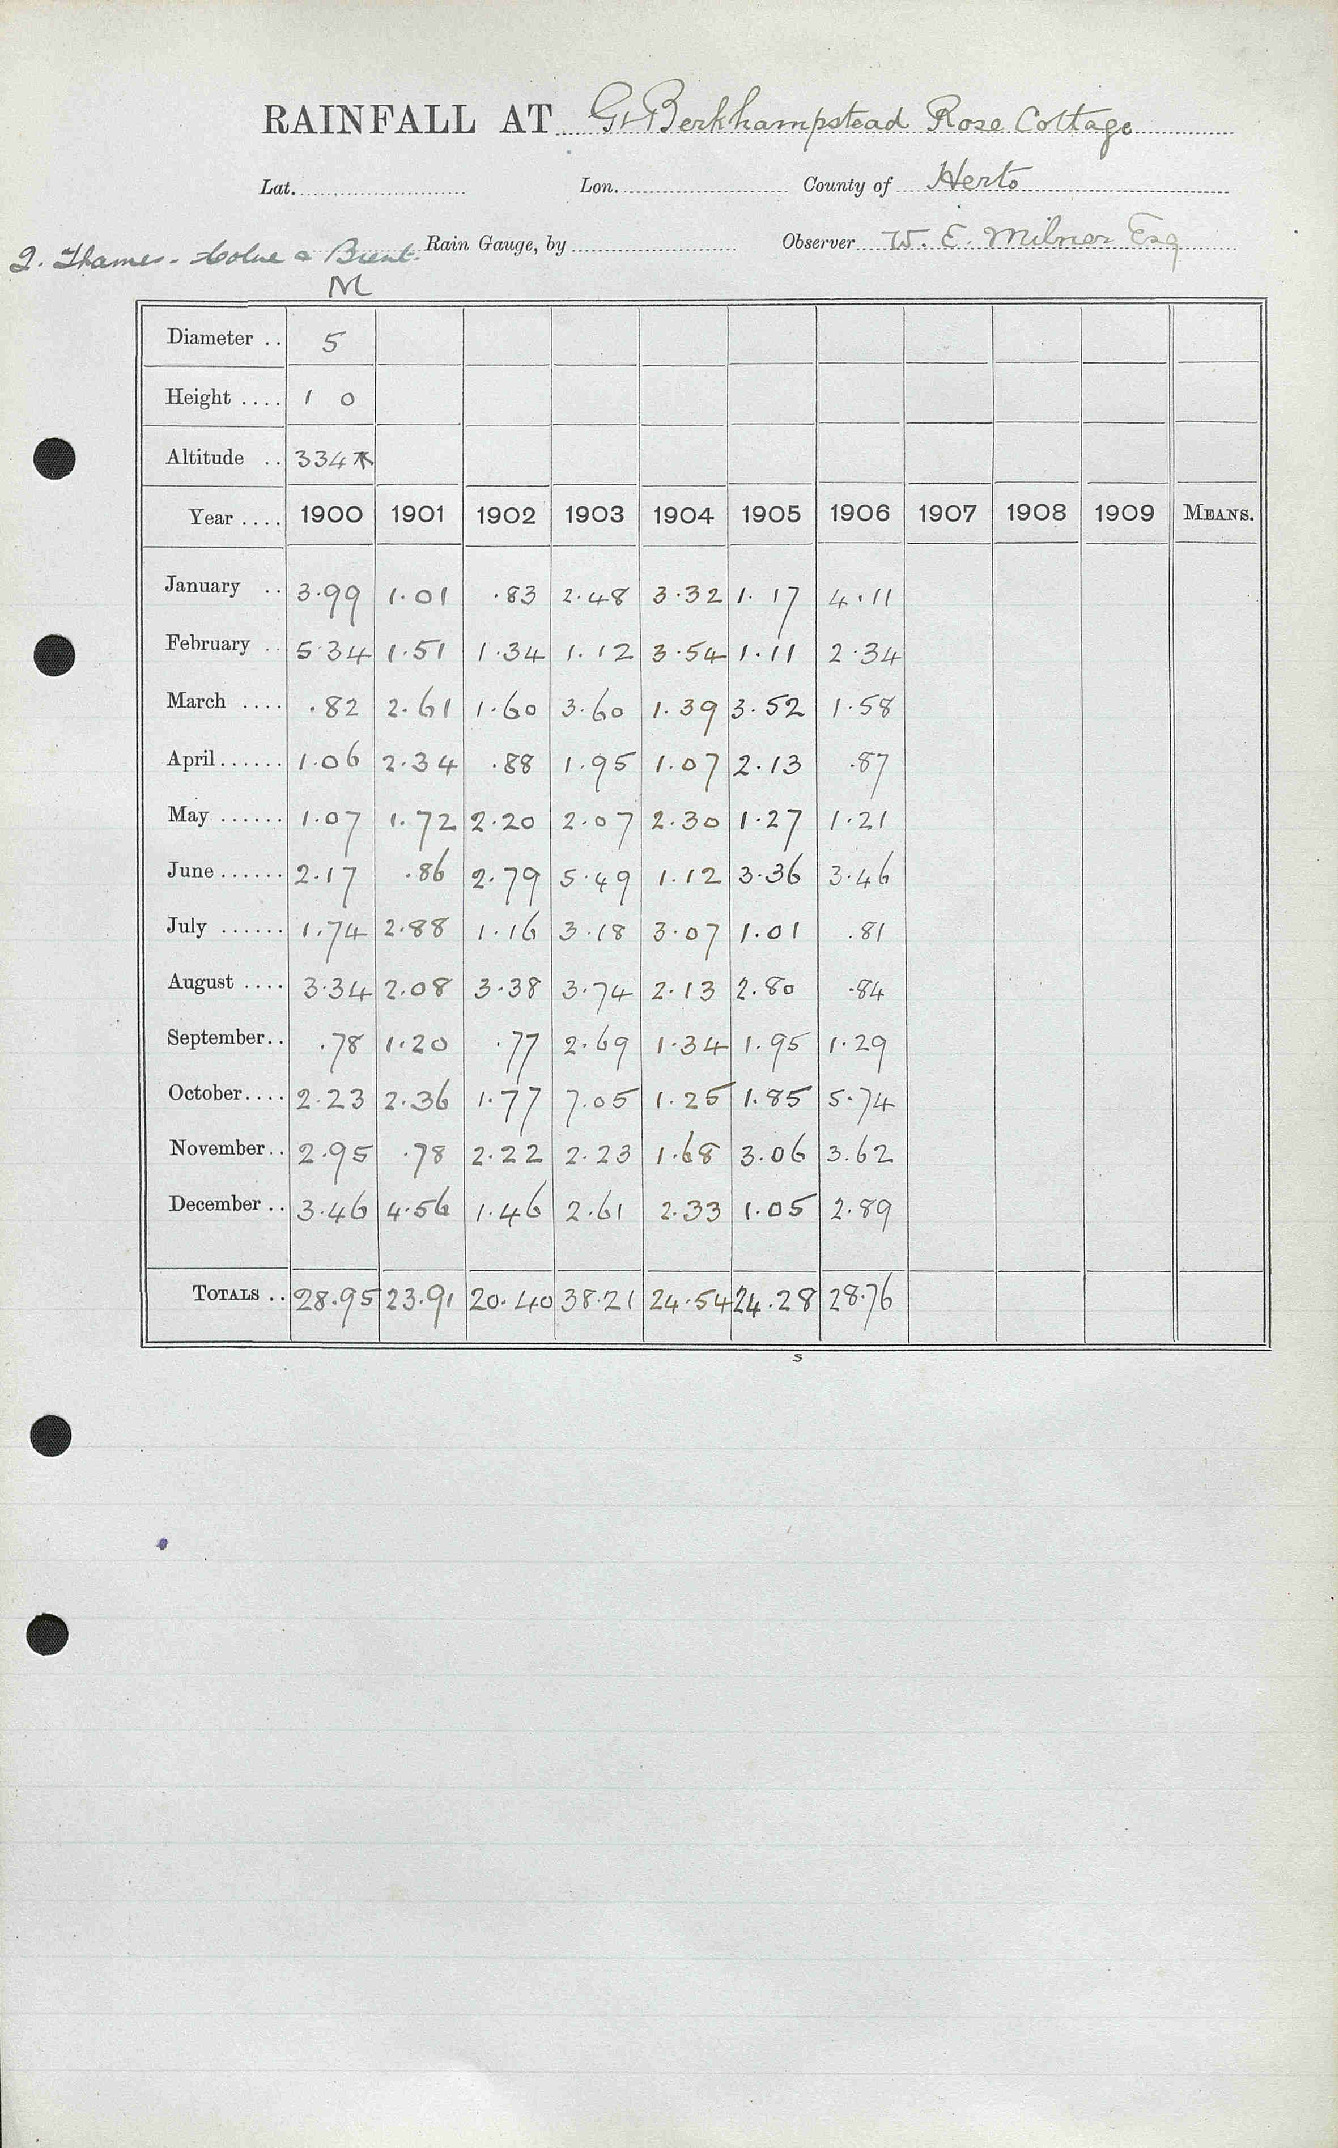 RAINFALL AT Gt Berkhampstead Rose Cottage
Lat. Lon. County of Herts
Rain Gauge, by Observer W. E. Milner Esq
2. Thames - Colne & Brent.
M
Diameter .. 5
Height .... 1 0
Altitude .. 334
Year .... 1900 1901 1902 1903 1904 1905 1906 1907 1908 1909 MEANS.
January .. 3.99 1.01 .83 2.48 3.32 1.17 4.11
February .. 5.34 1.51 1.34 1.12 3.54 1.11 2.34
March .... .82 2.61 1.60 3.60 1.39 3.52 1.58
April...... 1.06 2.34 .88 1.95 1.07 2.13 .87
May ...... 1.07 1.72 2.20 2.07 2.30 1.27 1.21
June ...... 2.17 .86 2.79 5.49 1.12 3.36 3.46
July ...... 1.74 2.88 1.16 3.18 3.07 1.01 .81
August .... 3.34 2.08 3.38 3.74 2.13 2.80 .84
September.. .78 1.20 .77 2.69 1.34 1.95 1.29
October.... 2.23 2.36 1.77 7.05 1.25 1.85 5.74
November.. 2.95 .78 2.22 2.23 1.68 3.06 3.62
December .. 3.46 4.56 1.46 2.61 2.33 1.05 2.89
TOTALS .. 28.95 23.91 20.40 38.21 24.54 24.28 28.76
s